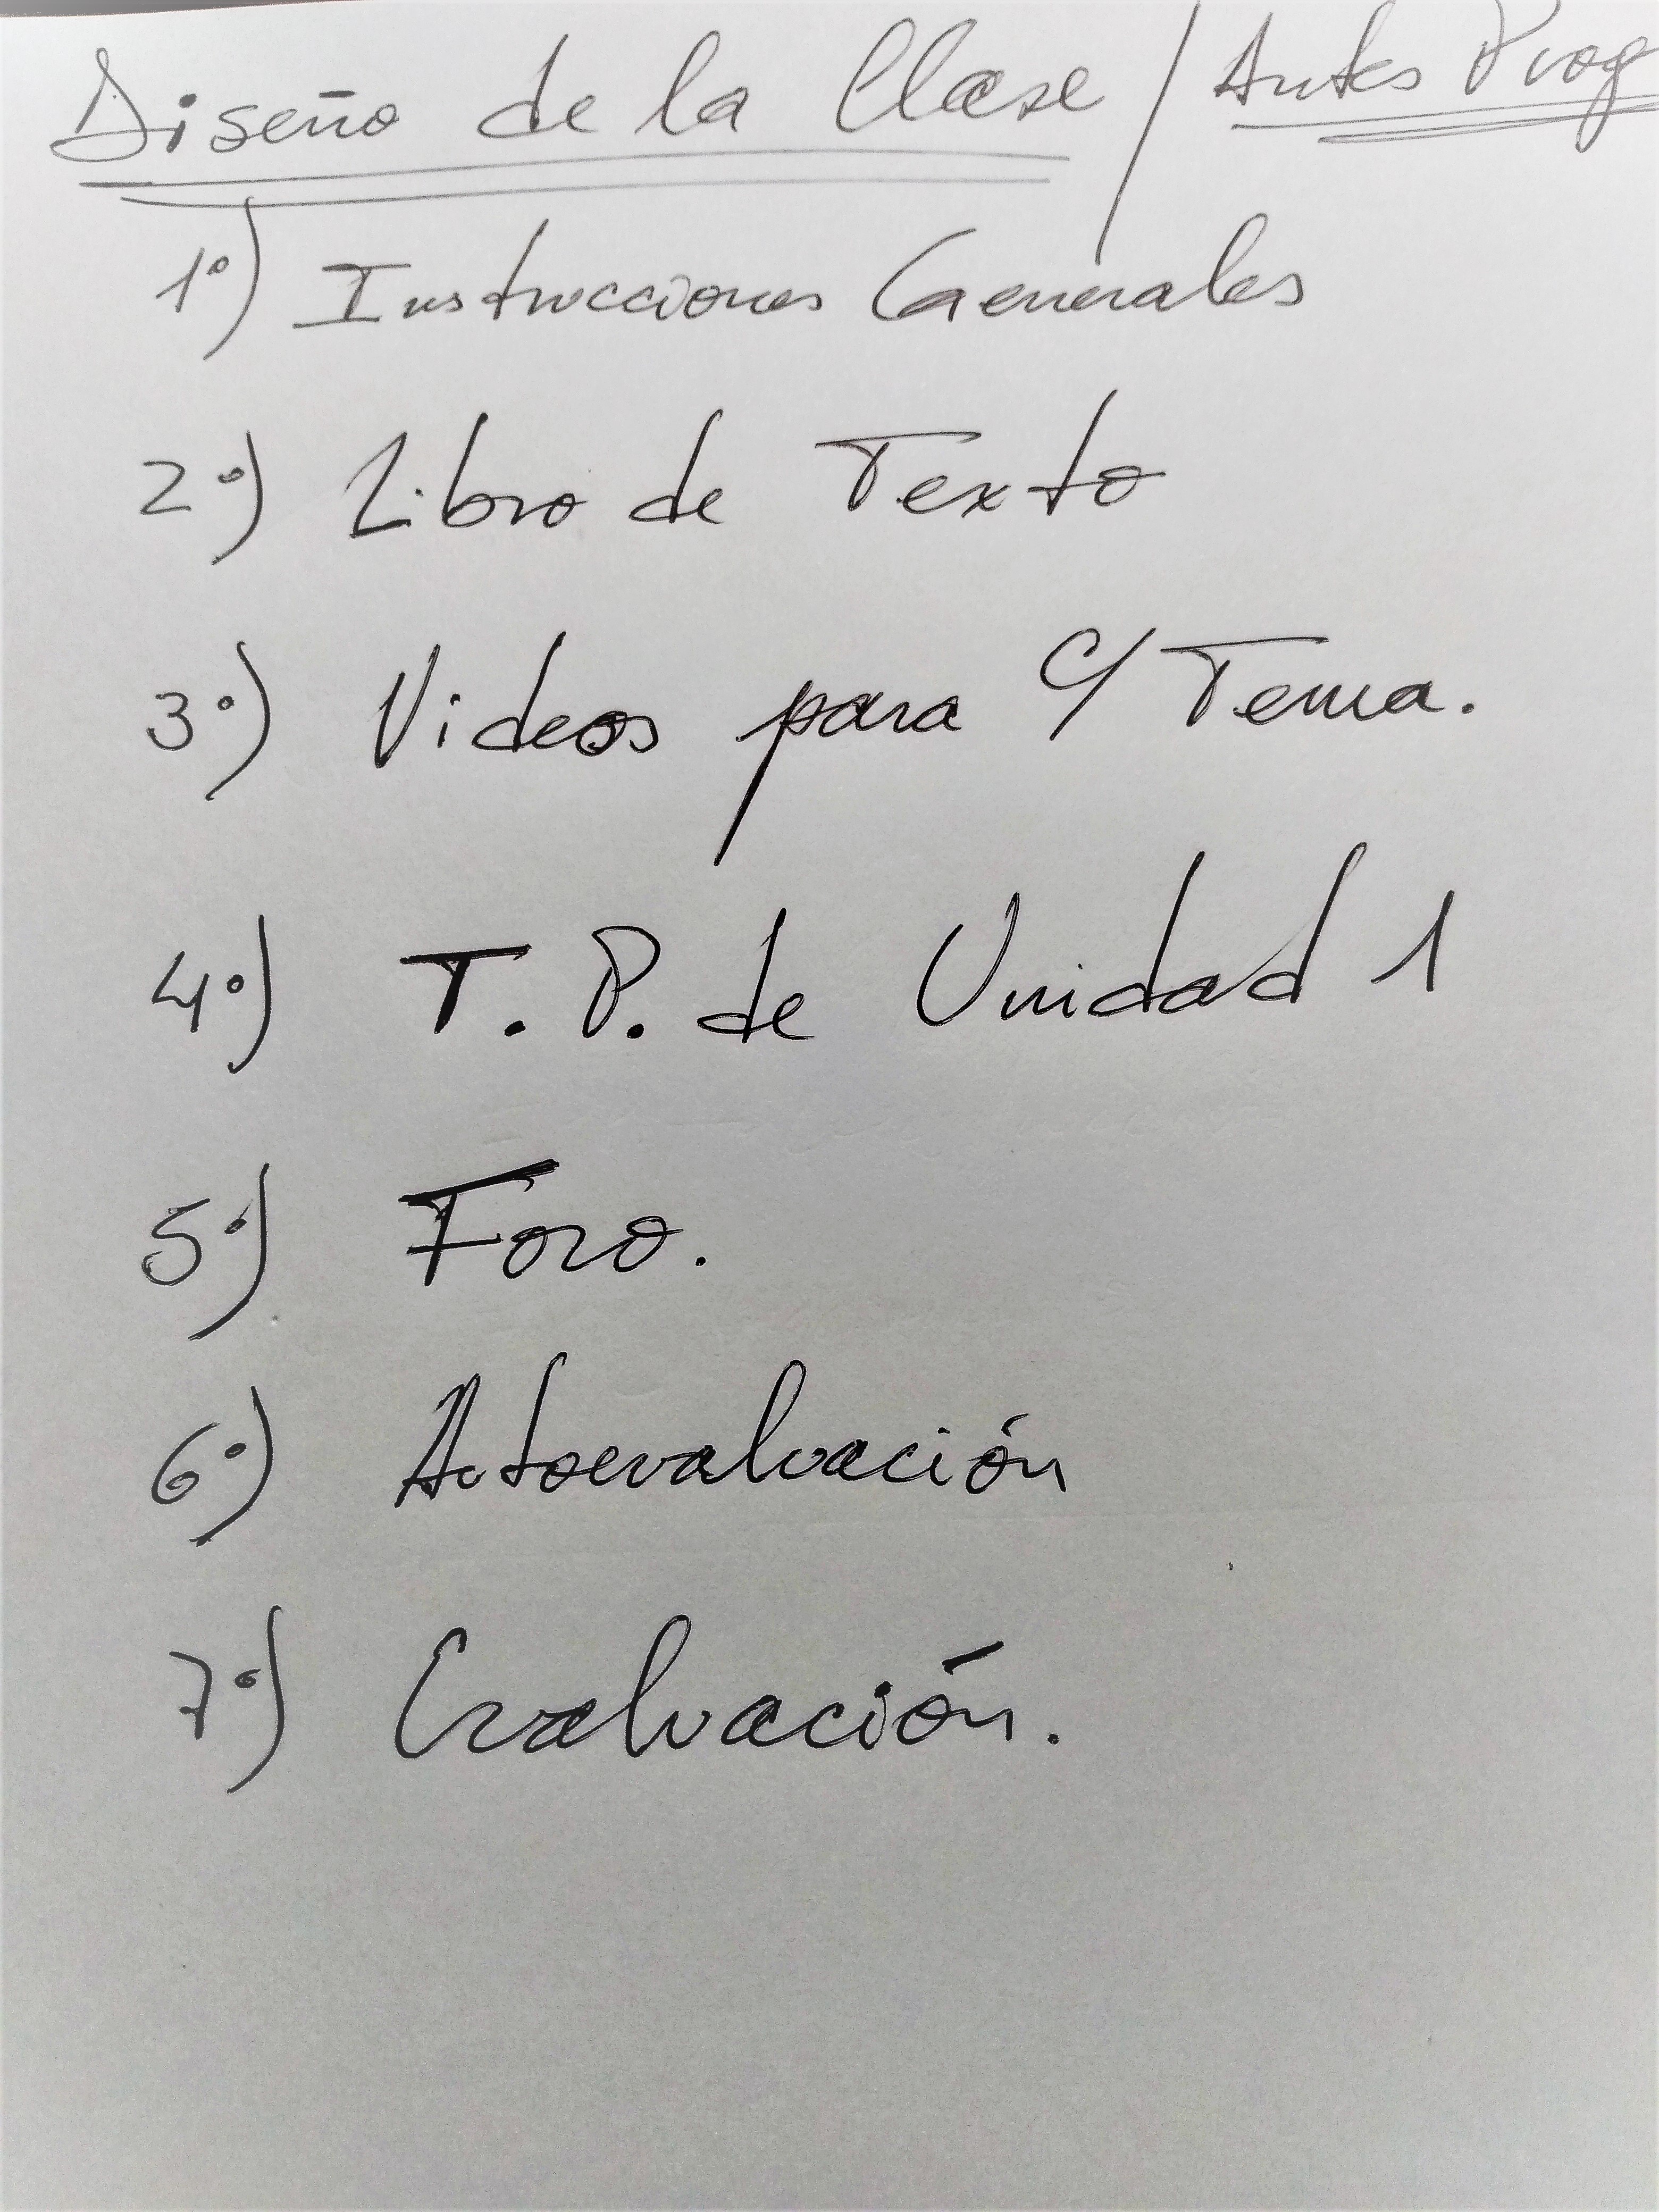 Diseño de la Clase / Antes Prog
1º) Instrucciones Generales
2º) Libro de Texto
3º) Videos para C/ Tema.
4º) T. P. de Unidad 1
5º) Foro.
6º) Autoevaluación
7º) Evaluación.